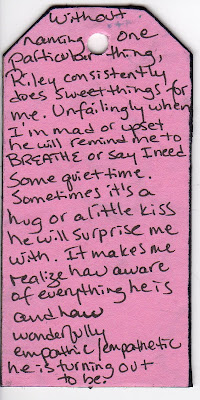 Without
naming one
particular thing,
Riley consistently
does sweet things for
me. Unfailingly when
I'm mad or upset
he will remind me to
BREATHE or say I need
some quiet time.
Sometimes it's a
hug or a little kiss
he will surprise me
with. It makes me
realize how aware
of everything he is
and how
wonderfully
empathic/empathetic
he is turning out
to be.